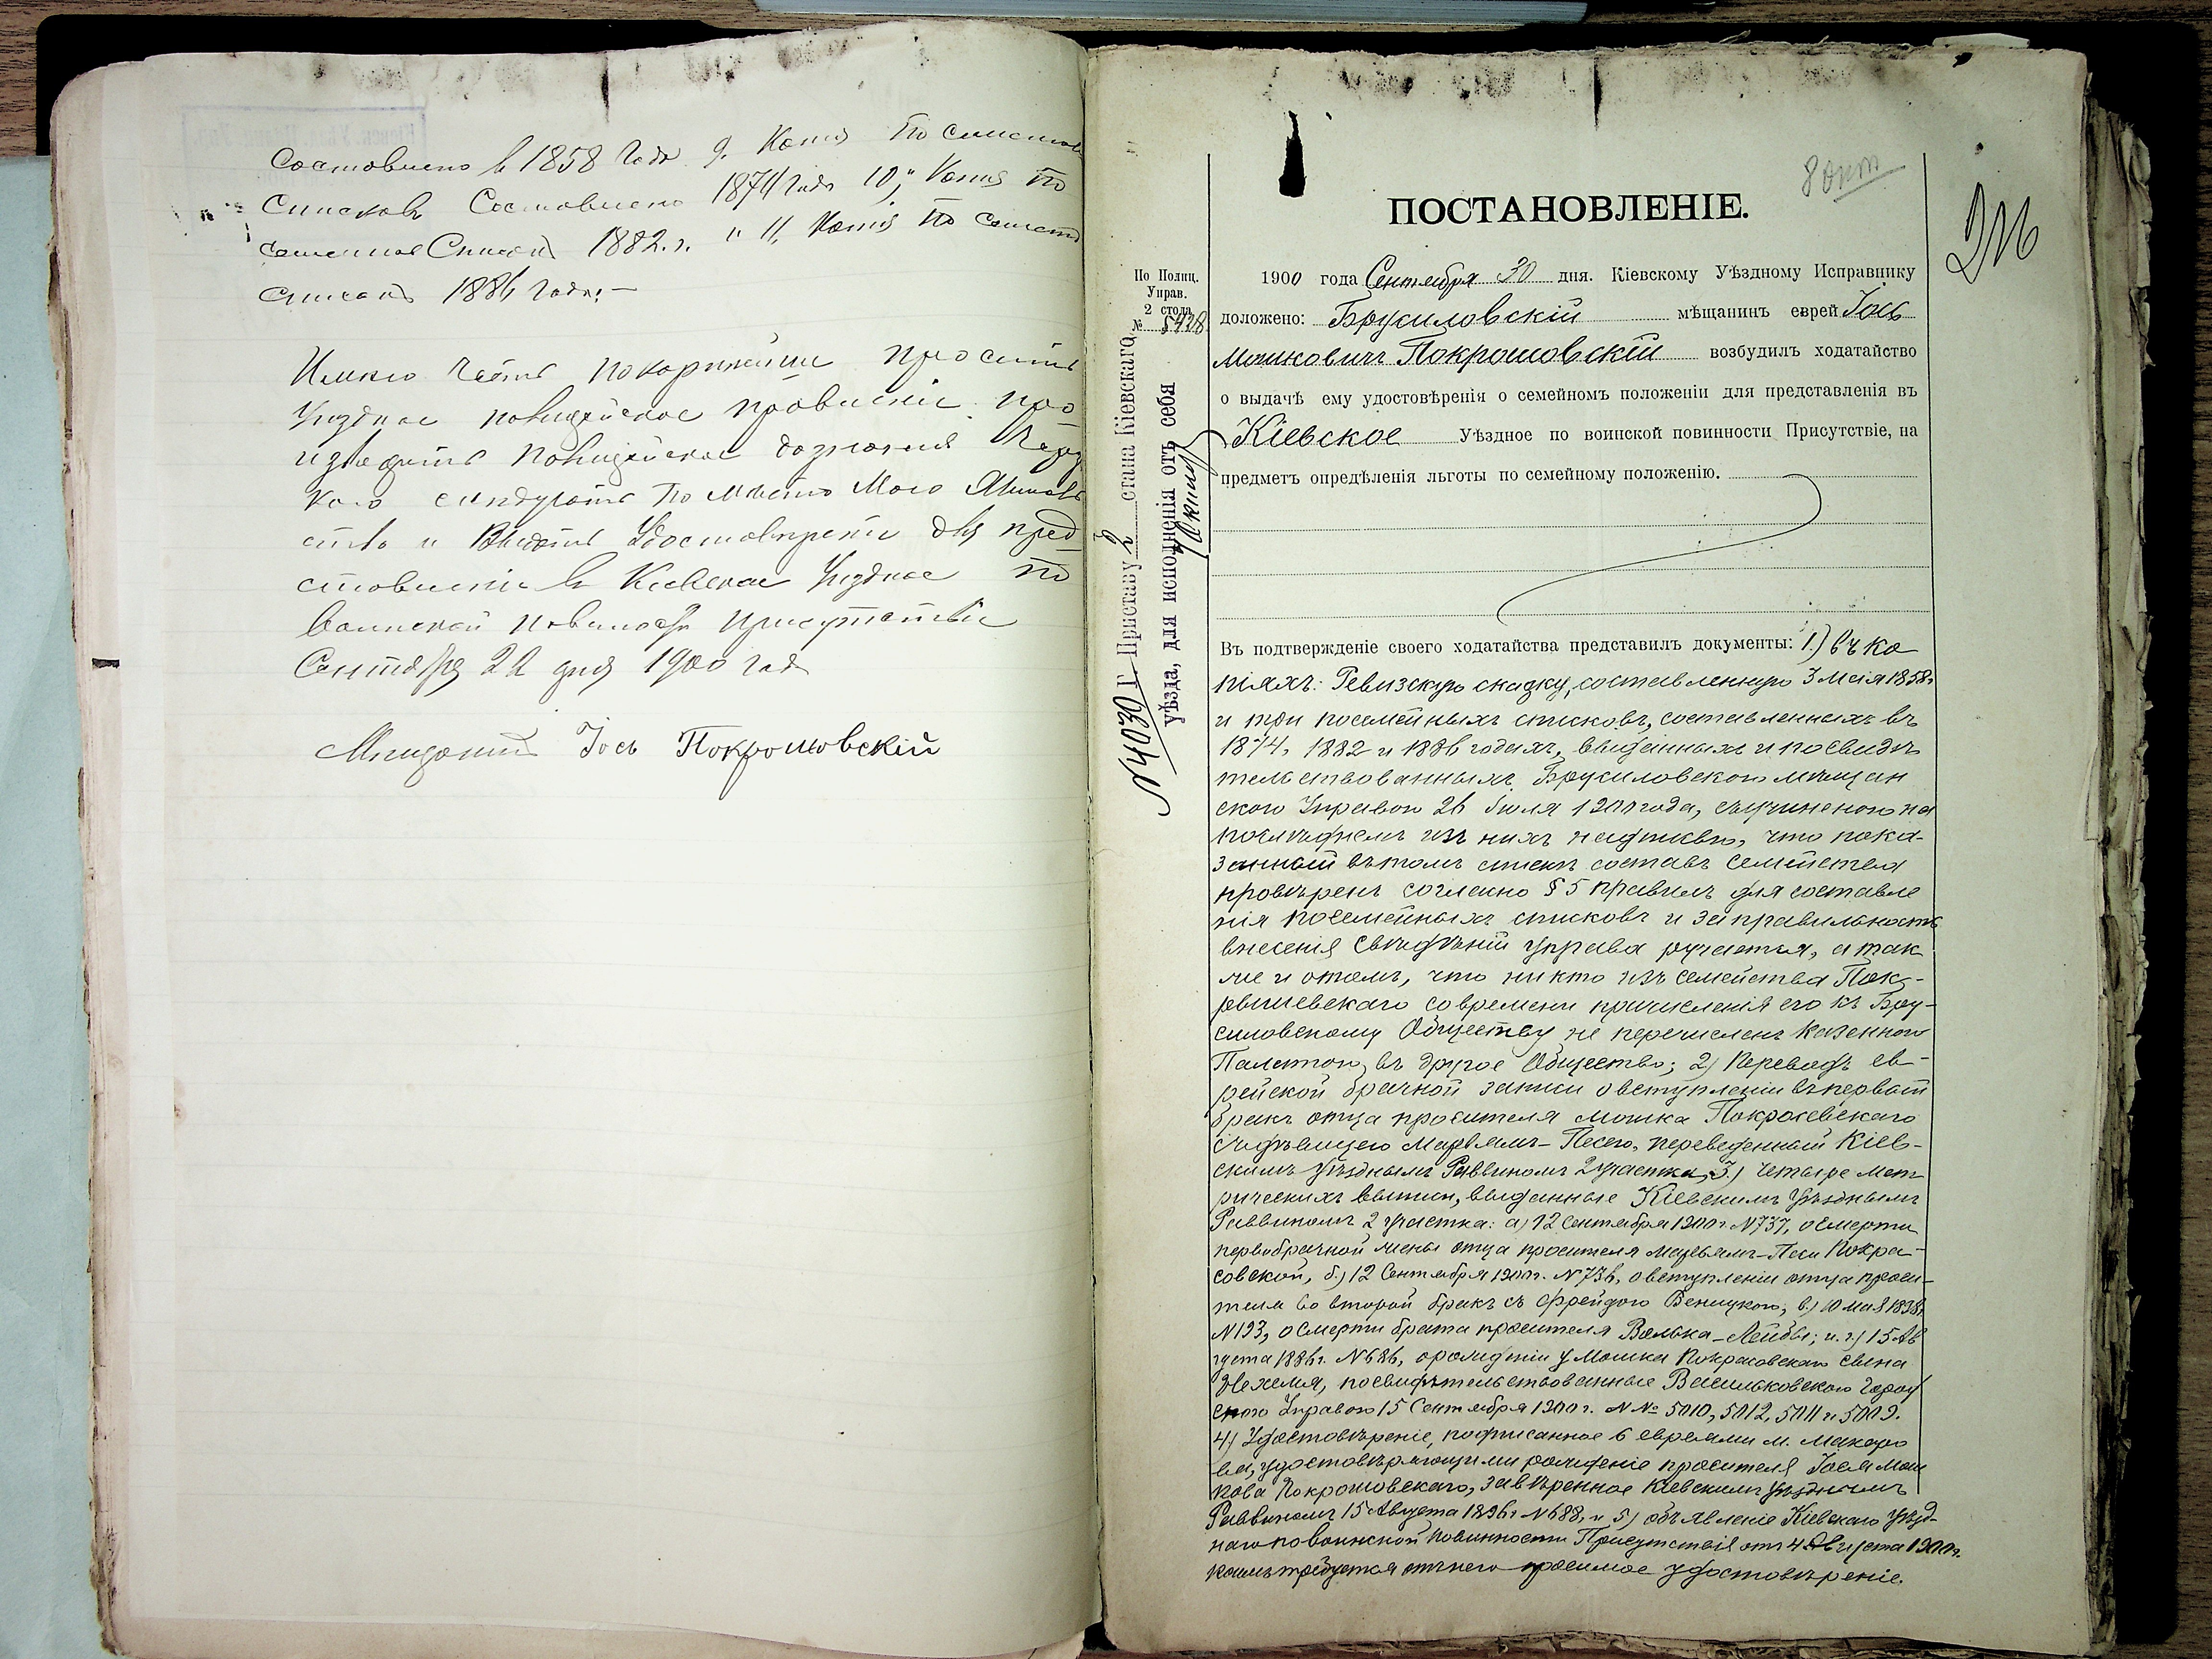 Состовлено в 1858 Года 9. Копія По Семейнов
Списковъ Состовлено 1874 Года 10,, Копія По
семейнов Списка 1882. г. " 11, Копія По Семейно
списакъ 1886 Года: —
Имѣю честь покорнѣйше просить
Уѣздное полицейское провленіе про
изводить полицейское дознаніе
кого слѣдуетъ По мѣсто Мого Жител
ство и Видать Удостовѣрени для пред
стовленіи в Киевское Уѣздное по
воинской повиность присутствіи
Сентября 22 дня 1900 года
Мещанинъ Іось Покрошовскій
8 окт
216
ПОСТАНОВЛЕНІЕ.
По Полиц.
Управ.
2 стола
№ 5928
1900 года Сентября 30 дня. Кіевскому Уѣздному Исправнику
доложено: Брусиловскій мѣщанинъ еврей Іось
Мошковичъ Покрошовскій возбудилъ ходатайство
о выдачѣ ему удостовѣренія о семейномъ положеніи для представленія въ
Кіевское Уѣздное по воинской повинности Присутствіе, на
предметъ опредѣленія льготы по семейному положенію.
Г. Приставу 2 стана Кіевскаго
уѣзда, для исполненія отъ себя
Въ подтвержденіе своего ходатайства представилъ документы: 1.) въ ко
піяхъ: Ревизскую сказку, составленную 3 Мая 1858 г
и три посемейныхъ списковъ, составленныхъ въ
1874, 1882 и 1886 годахъ, выданныхъ и посвидѣ
тельствованныхъ Брусиловскою мѣщан
скою Управою 26 Іюля 1900 года, съ учиненою на
послѣднемъ изъ нихъ надписью, что пока-
занный въ томъ списке составъ семейства
провѣренъ согласно § 5 правилъ для составле
нія посемейныхъ списковъ и за правильность
внесенія свѣдѣній управа ручается, а так
же и о томъ, что никто изъ семейства Пок-
рышевскаго современи причисленія его къ Бру-
силовскому Обществу не перечисленъ Казенною
Палатою въ другое Общество; 2) Переводъ ев-
рейской брачной записи о вступленіи въ первый
бракъ отца просителя Мошка Покросевскаго
съ дѣвицею Марьямъ-Песею, переведенный Кіев-
скимъ Уѣзднымъ Раввиномъ 2 участка, 3.) Четыре мет
рическихъ выписи, выданные Кіевскимъ Уѣзднымъ
Раввиномъ 2 участка: а) 12 Сентября 1900 г. N 737, о смерти
первобрачной жены отца просителя Марьямъ-Песи Покра-
совской, б.) 12 Сентября 1900 г. N 736, о вступленіи отца проси-
теля во второй бракъ съ Фрейдою Веницкою, в.) 10 мая 1898 г
N 193, о смерти брата просителя Волька-Лейбы; и г.) 15 Ав
густа 1886 г. N 686, о рожденіи у Мошка Покросовскаго сына
Нехемя, посвидѣтельствованные Васильковскою Город
скою Управою 15 Сентября 1900 г. N№ 5010, 5012, 5011 и 5009.
4) Удостовѣреніе, подписанное 6 евреями м. Макаро
ва, удостовѣряющими рожденіе просителя Іося Мош
кова Покрошовскаго, завѣренное Кіевскимъ Уѣзднымъ
Раввиномъ 15 Августа 1896 г N 688, и 5) объявленіе Кіевскаго Уѣзд-
наго по воинской повинности Присутствія отъ 4 Августа 1900 г.
коимъ требуется отъ него просимое удостовѣреніе.